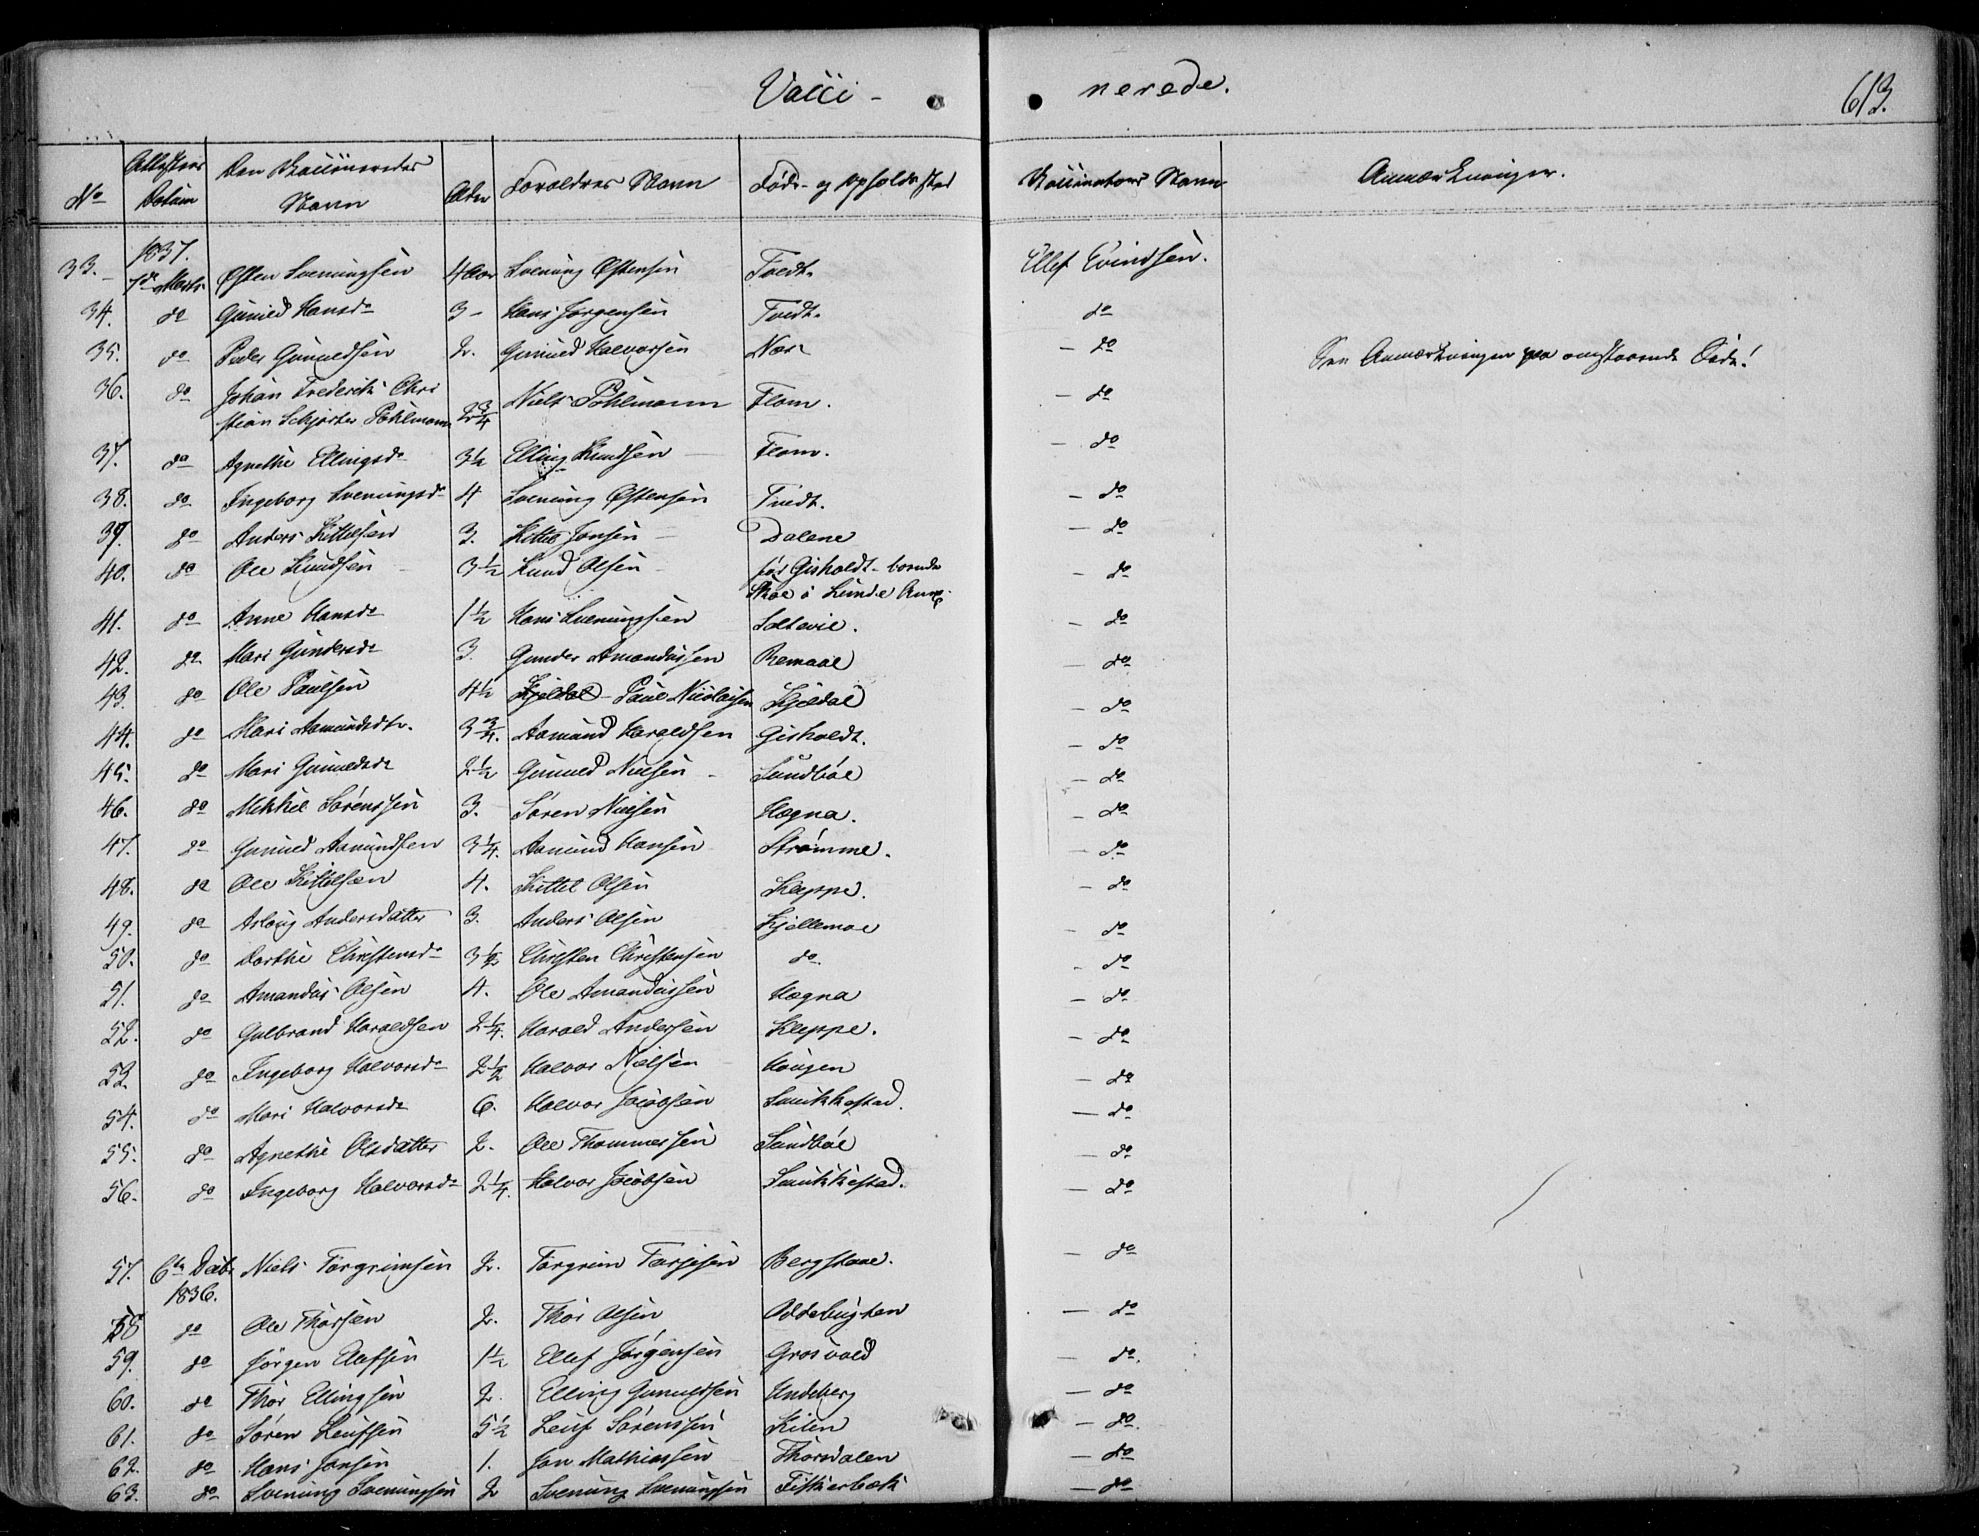 Vacci- nerede. 613.
No Attestens Datum Den Vaccineredes Navn Alder Forældres Navn Føde- og Opholdssted Vaccinateurs Navn Anmærkninger.
33. 1837. 7de Marts Østen Svenungsen 4 Aar Svenung Østensen Tvedt. Ellef Evindsen.
34. do Gunild Hansdr 3 - Hans Jørgensen Tvedt. do
35. do Peder Gunuldsen 2. Gunuld Halvorsen Næs - do See Anmærkningen paa omstaaende Side!
36. do Johan Frederik Chri
stian Schjøter Pøhlmann 2 3/4 Niels Pøhlmann Flom. - do
37. do Agnethe Ellingsdr 3 1/2 Elling Knudsen Flom. - do
38. do Ingeborg Svenungsdr 4 Svenung Østensen Tvedt. - do
39. do Anders Kittelsen 3. Kittel Jonsen Dalene - do
40. do Ole Knudsen 3 1/2 Knud Olsen før Gisholdt - boende - do
i Lunde Annex
41. do Anne Hansdr 1 1/2 Hans Svenungsen Soltvie. - do
42. do Mari Gundersdr 3. Gunder Amundussen Remaae - do
43. do Ole Paulsen 4 1/2 Kjeldal Paul Nicolaisen Kjeldal - do
44. do Mari Aamundsdtr. 3 3/4. Aamund Haraldsen Gisholdt. - do
45. do Mari Gunuldsdr 2 1/2 Gunuld Nielsen Sundbøe - do
46. do Mikkel Sørenssen 3. Søren Nielsen Hægna. - do
47. do Gunuld Aamundsen 3 1/4. Aamund Hansen Strømme. - do
48. do Ole Kittelsen 4. Kittel Olsen Kleppe. - do
49. do Aslaug Andersdatter 3. Anders Olsen Kjellemoe - do
50. do Dorthe Christensdr 3 1/2 Christen Christensen do. - do
51. do Amandus Olsen 4. Ole Amandussen Hægna - do
52. do Gulbrand Haraldsen 2 1/4. Harald Andersen Kleppe. - do
53. do Ingeborg Halvorsdr 2 1/2 Halvor Nielsen Haugen - do
54. do Mari Halvorsdr 6. Halvor Jacobsen Snikkestad. - do
55. do Agnethe Olsdatter 2. Ole Thommessen Sundbøe - do
56. do Ingeborg Halvorsdr 2 1/4. Halvor Jacobsen Snikkestad. - do
57. 6te Decbr 1836. Niels Torgrimsen 2. Torgrim Torjesen Bergstane. - do
58 do Ole Thorsen 2. Thor Olsen Oddebugten - do
59. do Jørgen Elefsen 1 1/2 Ellef Jørgensen Grosvold - do.
60. do Thor Ellingsen 2. Elling Gunuldsen Undeberg - do
61. do Søren Leufsen 5 1/2 Leuf Sørenssen Kilen - do.
62. do Hans Jonsen 1. Jon Mathiassen Thorsdalen - do
63. do Svenung Svenungsen 2 Svenung Svenungsen Fiskerbæk - do